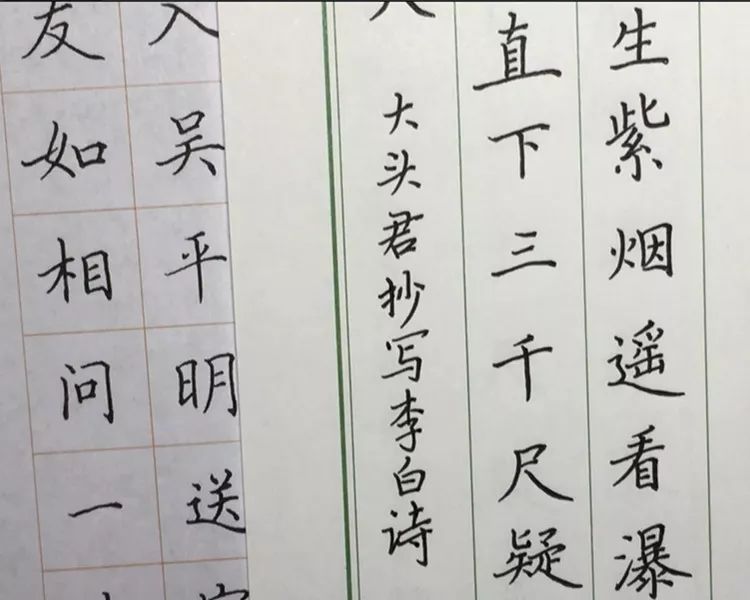 生紫烟遥看瀑
直下三千尺疑
大头君抄写李白诗
入吴平明送
友如相问一